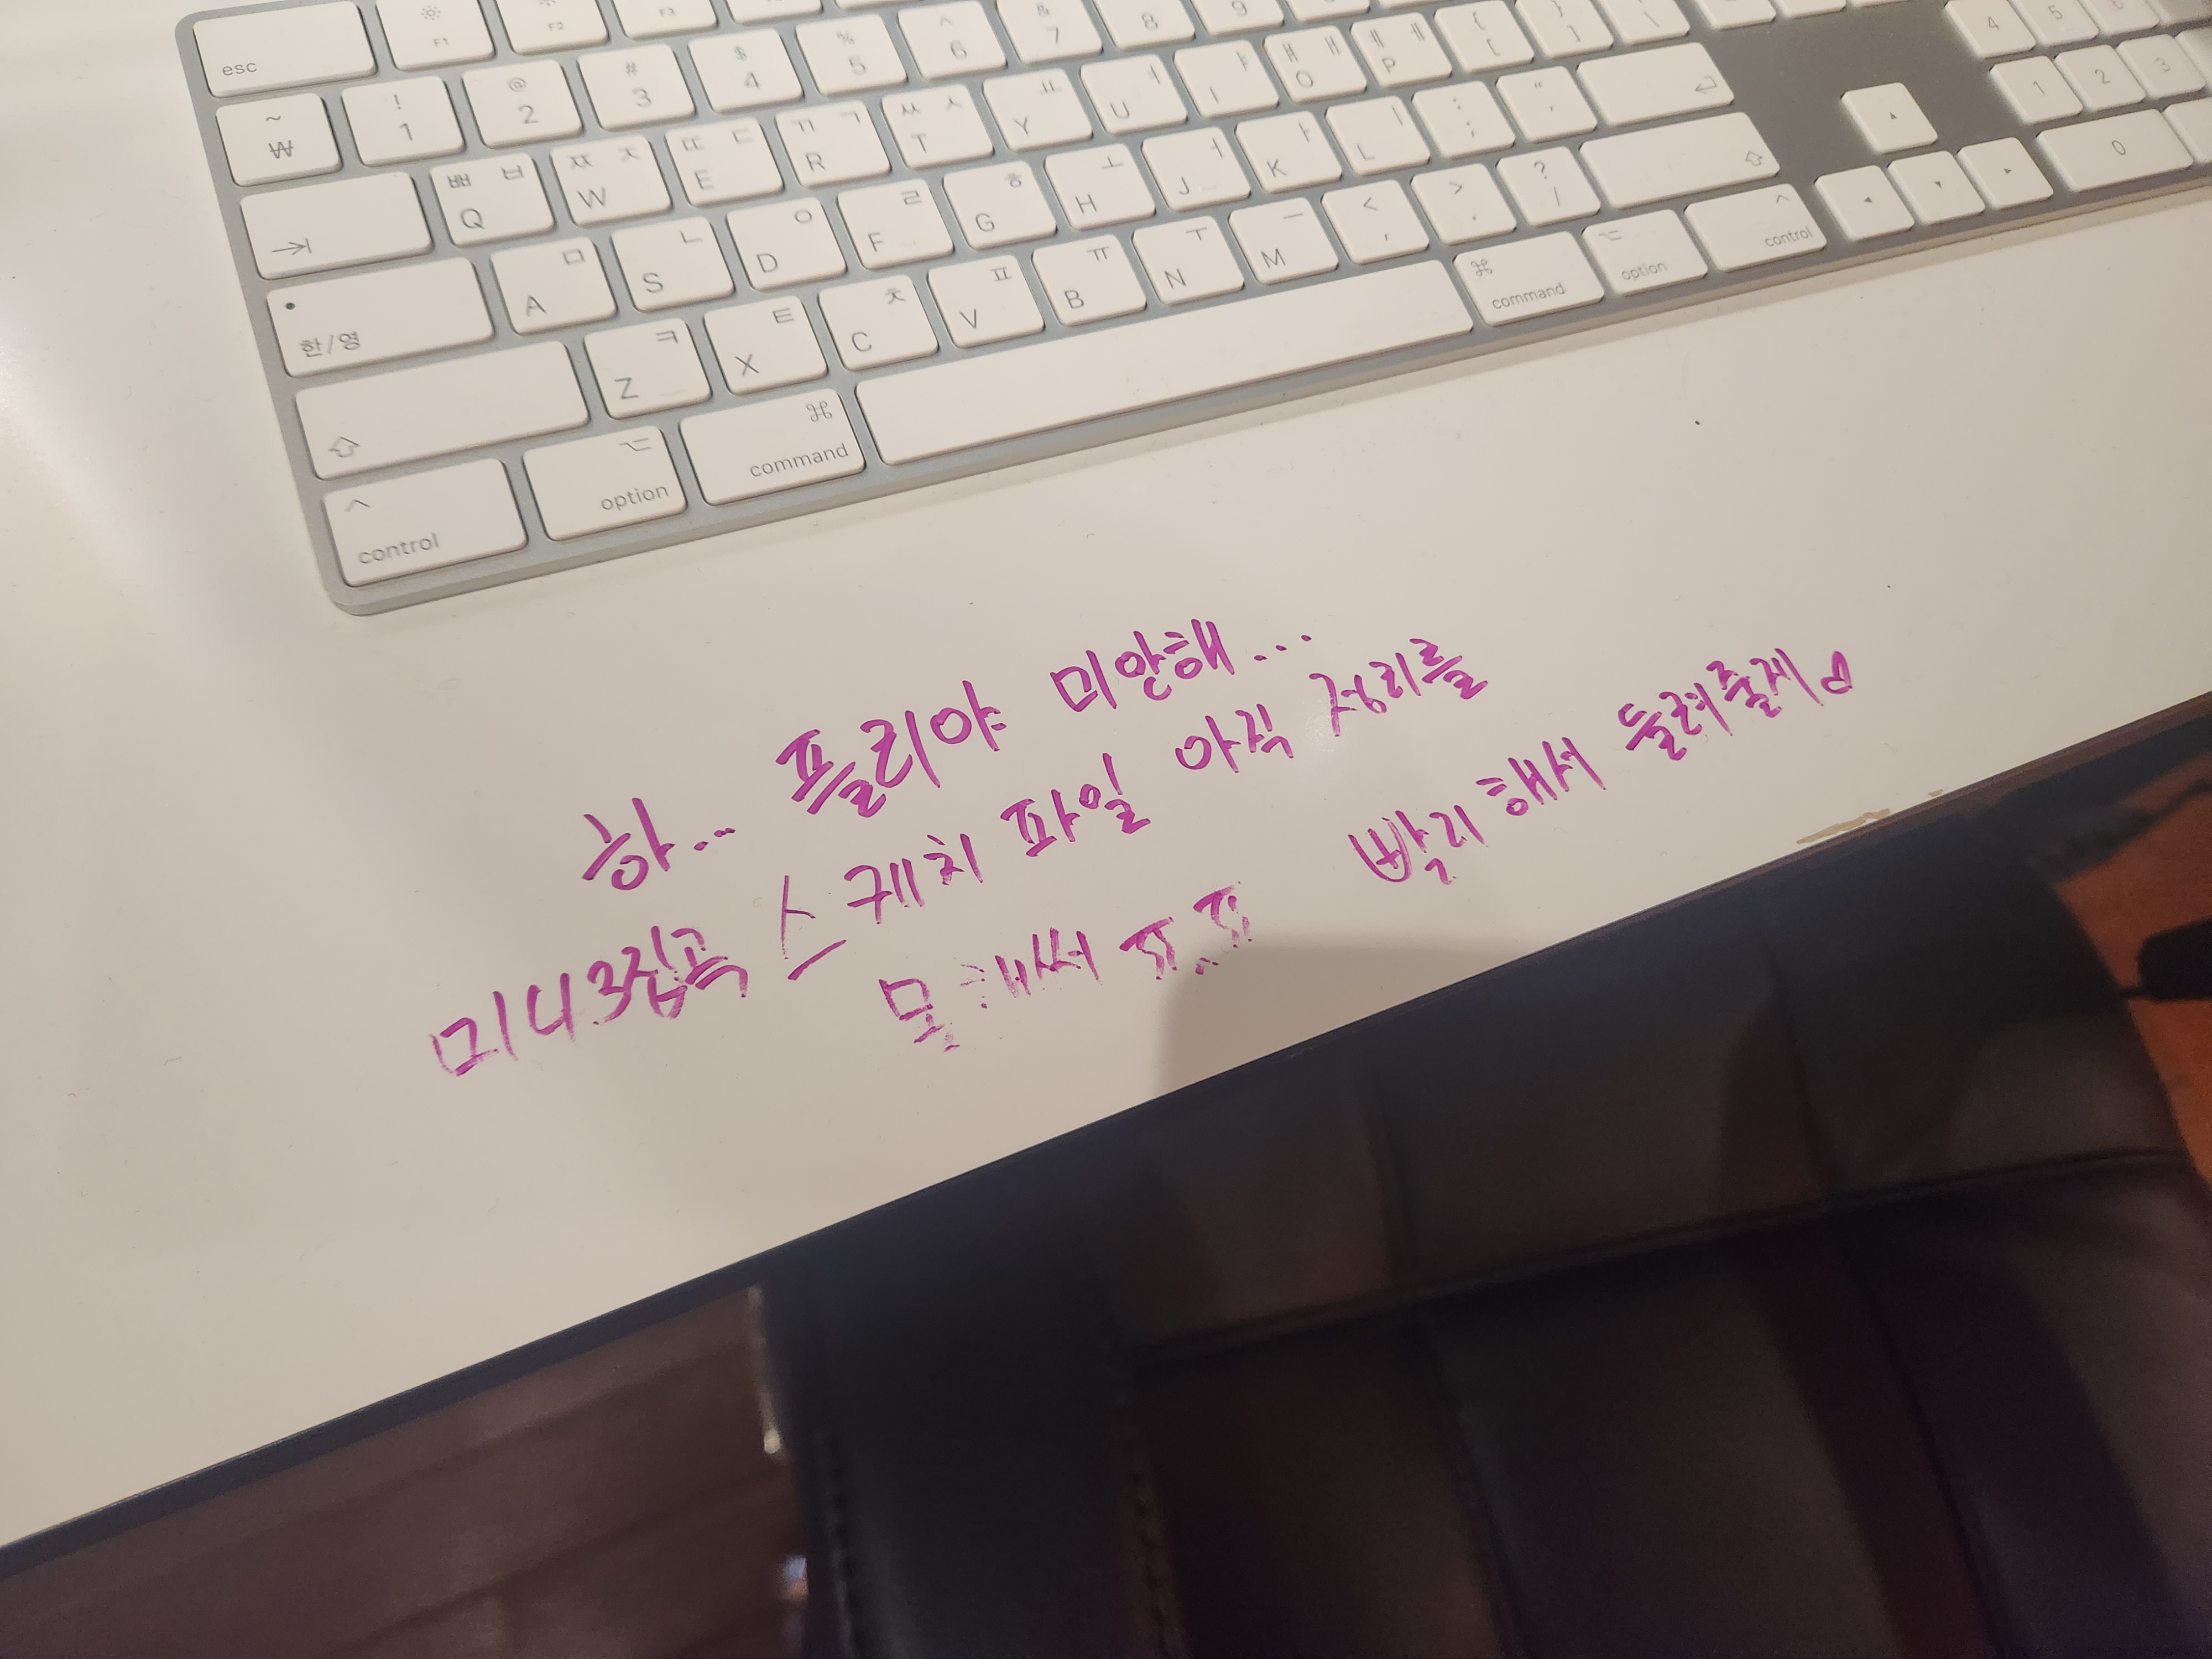 esc F1 F2 F3
~ ₩ ! 1 @ 2 # 3 $ 4 % 5 ^ 6 & 7 8 9
Q ㅃ ㅂ W ㅉ ㅈ E ㄸ ㄷ R ㄲ ㄱ T ㅆ ㅅ Y ㅛ U ㅕ I ㅑ O ㅒ ㅐ P ㅖ ㅔ { [ } ] \ 4 5
한/영 A ㅁ S ㄴ D ㅇ F ㄹ G ㅎ H ㅗ J ㅓ K ㅏ L ㅣ : ; " ' 1 2 3
Z ㅋ X ㅌ C ㅊ V ㅍ B ㅠ N ㅜ M ㅡ < , > . ? / 0
control option command command option control
하... 플리야 미안해...
미니3집곡 스케치 파일 아직 정리를
못해써 ㅠ..ㅠ 빨리 해서 들려줄게♡